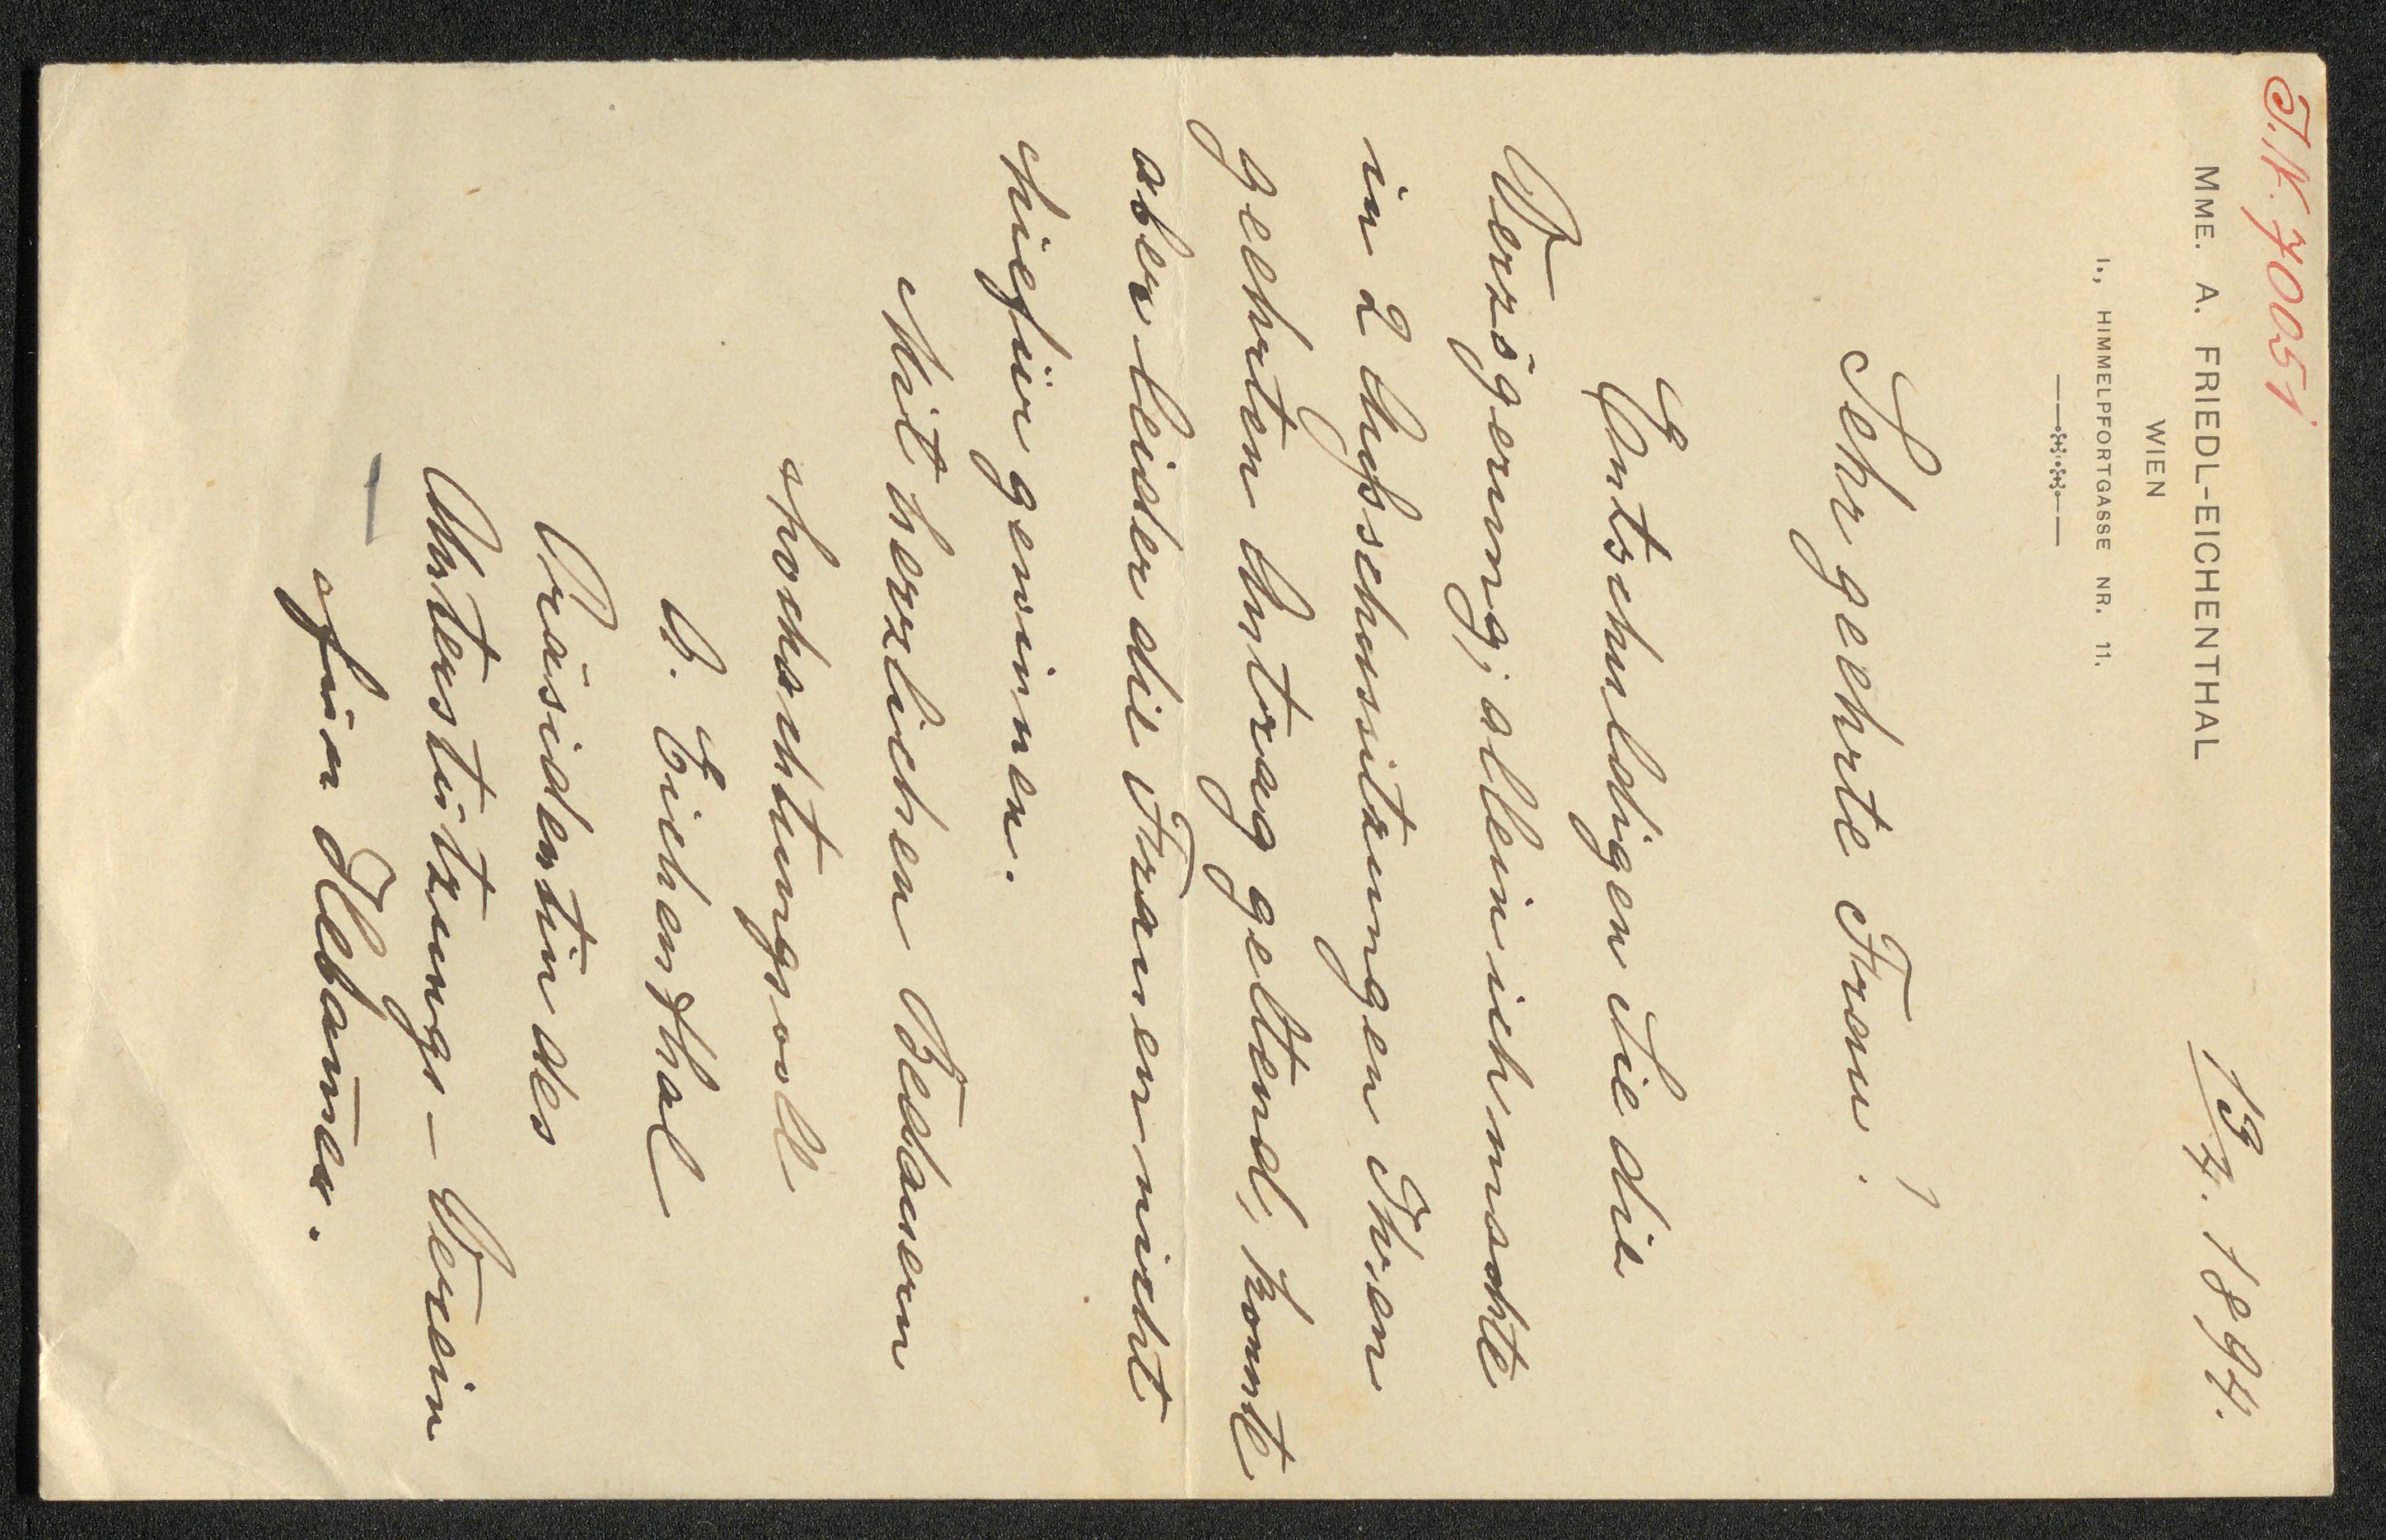 J.N. 70051
MME. A. FRIEDL-EICHENTHAL
WIEN
I., HIMMELPFORTGASSE NR. 11.
13/4. 1894.
Sehr geehrte Frau!
Entschuldigen Sie die
Verzögerung; allein ich machte
in 2 Ausschussitzungen Ihren
geehrten Antrag geltend, konnte
aber leider die Frauen nicht
hiefür gewinnen.
Mit herzlichem Bedauern
hochachtungsvoll
A. Eichenthal
Präsidentin des
Unterstützungs-Verein
für Hebamen.